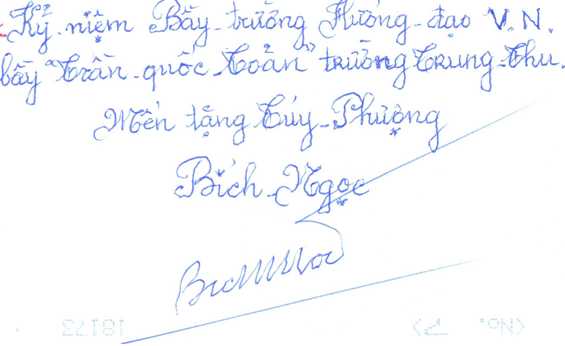 Kỷ-niệm Bầy-trưởng Hướng-đạo V.N.
bầy "Trần-quốc-Toản" trường Trung-Thu.
Mến tặng Túy-Phượng
Bích-Ngọc
BichNgoc
18173 <No. >